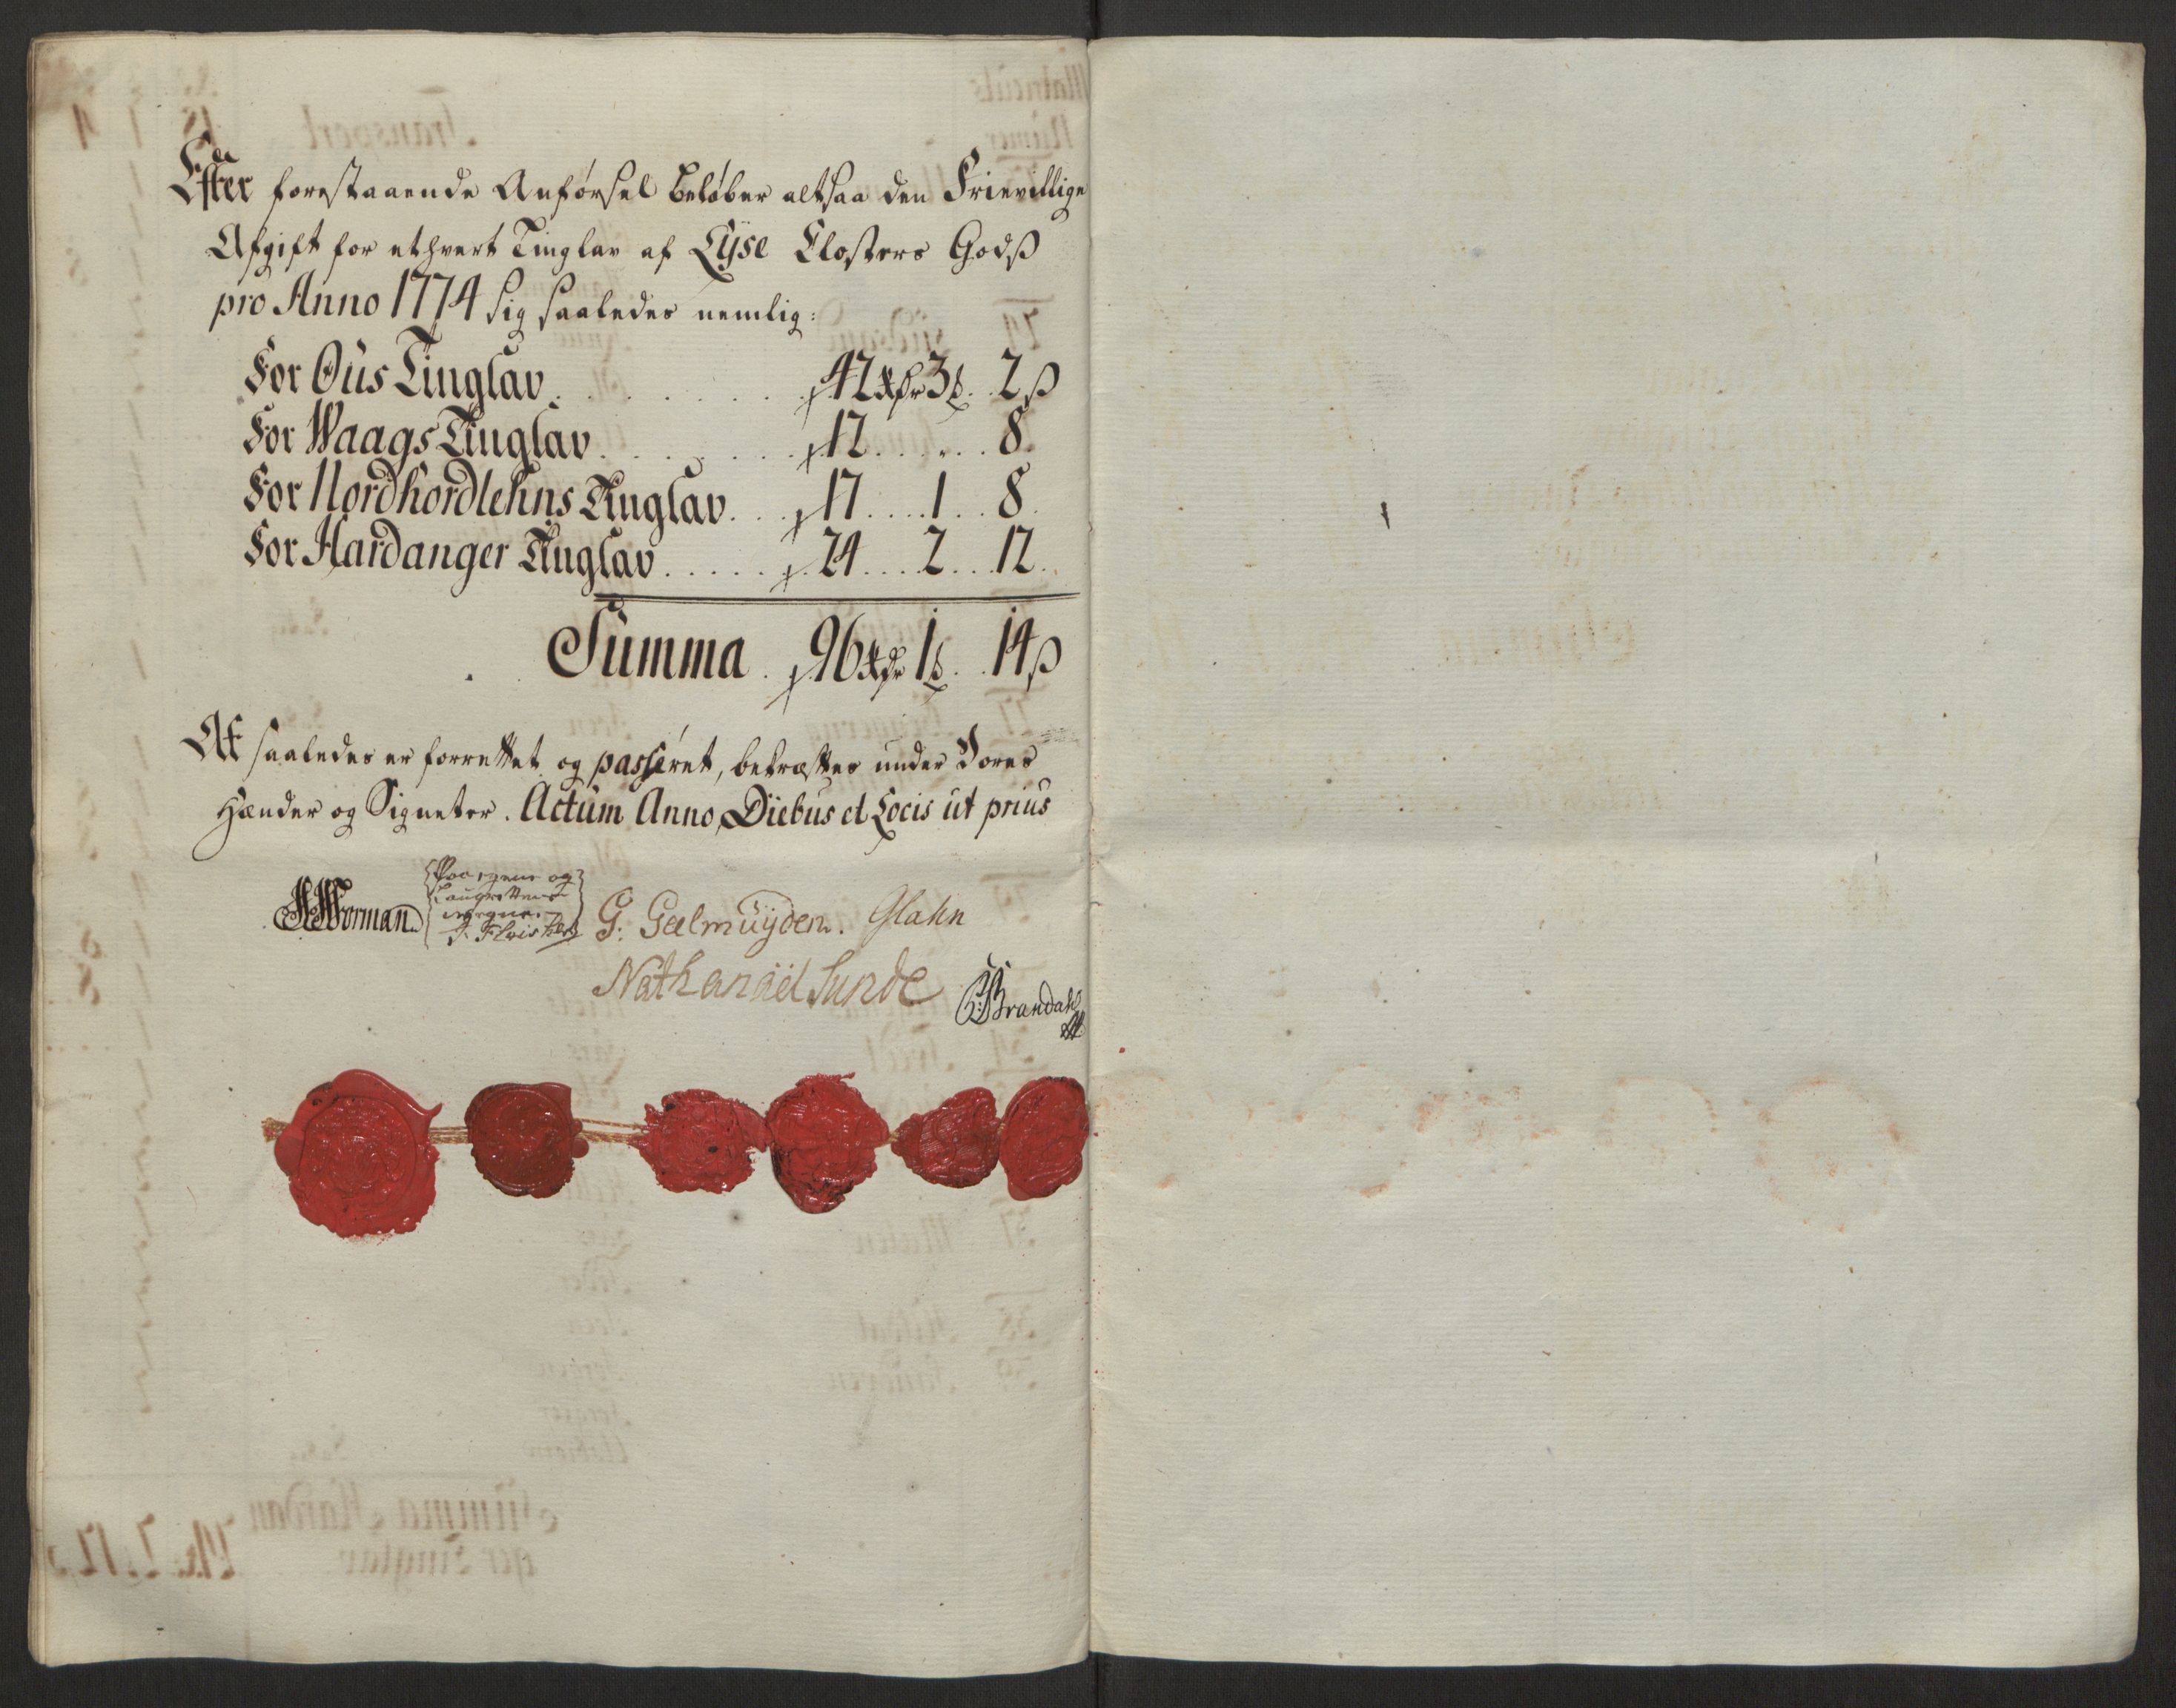 Efter forestaaende Anførsel beløber altsaa den Frievillige
Afgift for ethvert Tinglav af Lÿse Closters Godß
pro Anno 1774 sig saaledes nemlig:
For Ous Tinglav . . . . . . . 42 Rdr 3 ₰. 2 ß
For Waags Tinglav . . . . . . . 12 . . . . . . 8.
For Nordhordlehns Tinglav . . . 17 . . . 1 . . 8.
For Hardanger Tinglav . . . . . 24 . . . 2 . . 12.
Summa . 96 Rdr 1 ₰. 14 ß
At saaledes er forrettet og passeret, bekræftes under Vores
Hænder og Signeter. Actum Anno, Diebus et Locis ut prius
HWorman
Paa egene og
Laugrettens
vegne
J. Fleischer
G: Geelmuÿden. Glahn
Nathanaël Sunde
Brandahl